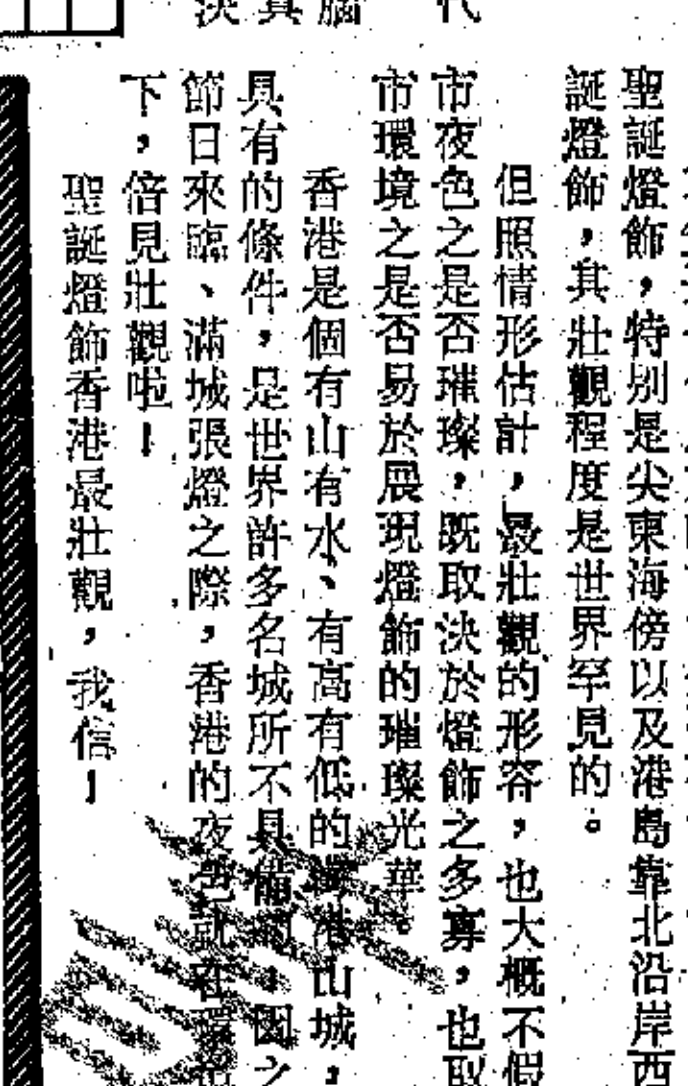 代
腦
真
決
聖誕燈飾，特別是尖東海傍以及港島靠北沿岸西
誕燈飾，其壯觀程度是世界罕見的。
但照情形估計，最壯觀的形容，也大概不假
市夜色之是否璀璨，既取決於燈飾之多寡，也取
市環境之是否易於展現燈飾的璀璨光華。
香港是個有山有水、有高有低的海港山城，
具有的條件，是世界許多名城所不具備的，因之
節日來臨、滿城張燈之際，香港的夜色就在環
下，倍見壯觀啦！
聖誕燈飾香港最壯觀，我信！